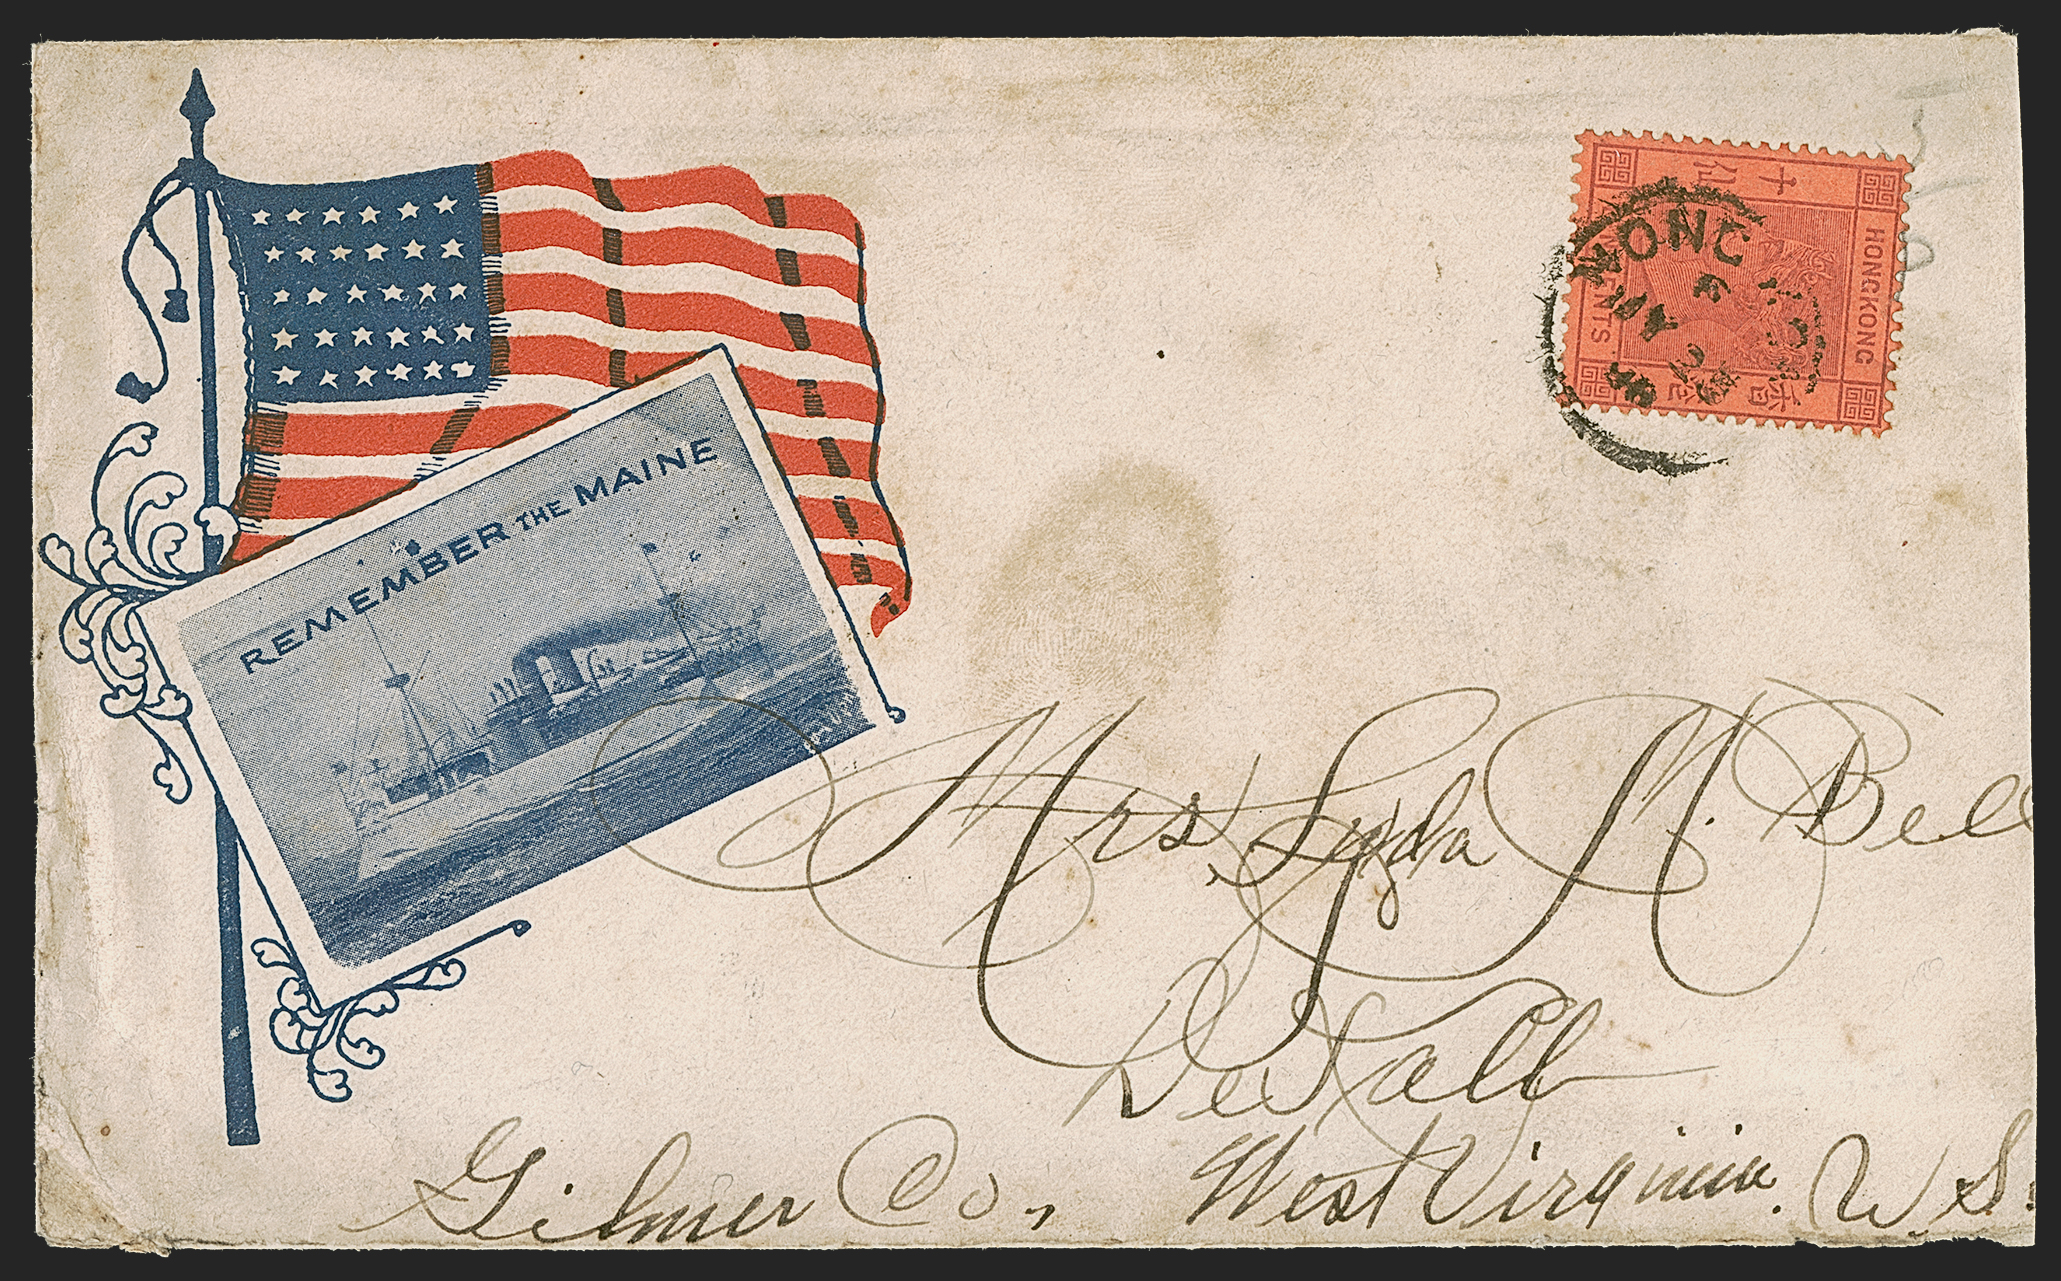 REMEMBER THE MAINE
HONGKONG
Mrs, Lyda M. Bell
DeKalb
Gilmer Co., West Virginia. U.S.